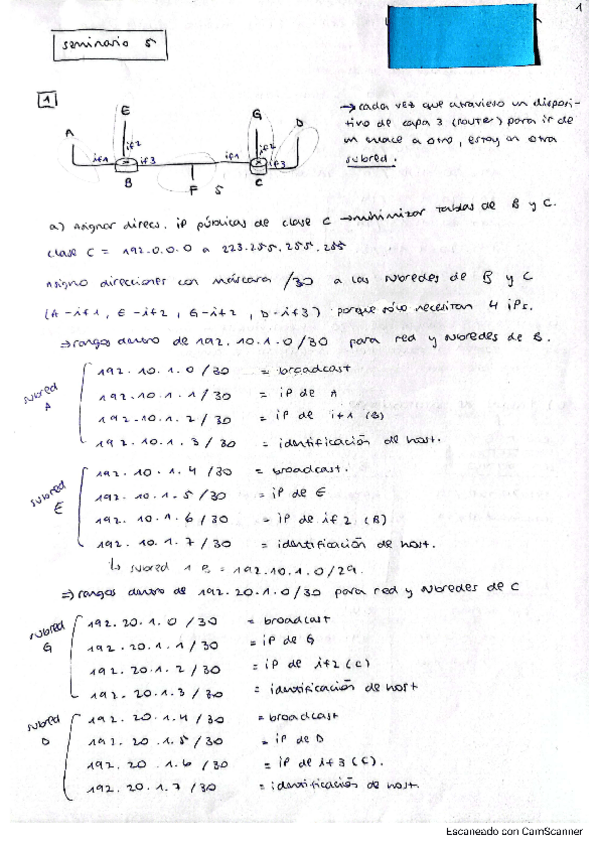 1
seminario 5
1
E
G
D
A
if2
if2
if1
if3
if1
if3
B
F
S
C
→ cada vez que atravieso un disposi-
tivo de capa 3 (router) para ir de
un enlace a otro, estoy en otra
subred.
a) asignar direcs. ip públicas de clase C → minimizar tablas de B y C.
clase C = 192.0.0.0 a 223.255.255.255
Asigno direcciones con máscara /30 a las subredes de B y C
(A-if1, E-if2, G-if2, D-if3) porque sólo necesitan 4 IPs.
⇒ rangos dentro de 192.10.1.0/30 para red y subredes de B.
subred A
192.10.1.0/30 = broadcast
192.10.1.1/30 = ip de A
192.10.1.2/30 = ip de if1 (B)
192.10.1.3/30 = identificación de host.
subred E
192.10.1.4/30 = broadcast.
192.10.1.5/30 = ip de E
192.10.1.6/30 = ip de if2 (B)
192.10.1.7/30 = identificación de host.
↳ subred = 192.10.1.0/29.
⇒ rangos dentro de 192.20.1.0/30 para red y subredes de C
subred G
192.20.1.0/30 = broadcast
192.20.1.1/30 = ip de G
192.20.1.2/30 = ip de if2 (C)
192.20.1.3/30 = identificación de host
subred D
192.20.1.4/30 = broadcast
192.20.1.5/30 = ip de D
192.20.1.6/30 = ip de if3 (C).
192.20.1.7/30 = identificación de host.
Escaneado con CamScanner